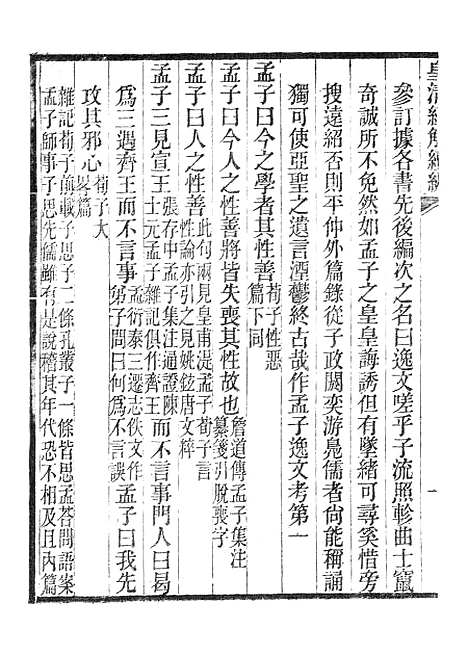 皇清經解續編
參訂據各書先後編次之名曰逸文嗟乎子流照軫曲士竄
奇誠所不免然如孟子之皇皇誨誘但有墜緒可尋奚惜旁
搜遠紹否則平仲外篇錄從子政闕奕游鳧儒者尙能稱誦
獨可使亞聖之遺言湮鬱終古哉作孟子逸文考第一
孟子曰今之學者其性善荀子性惡篇下同
孟子曰今人之性善將皆失喪其性故也詹道傳孟子集注纂箋引脫喪字
孟子曰人之性善此句兩見皇甫湜孟子荀子言性論亦引之見姚鉉唐文粹
孟子三見宣王張存中孟子集注通證陳士元孟子雜記俱作齊王而不言事門人曰曷
爲三遇齊王而不言事孟衍泰三遷志佚文作弟子問曰何爲不言誤孟子曰我先
攻其邪心荀子大畧篇
雜記荀子前載子思子二條孔叢子一條皆思孟荅問語案
孟子師事子思先儒雖有是說稽其年代恐不相及且內篇
一